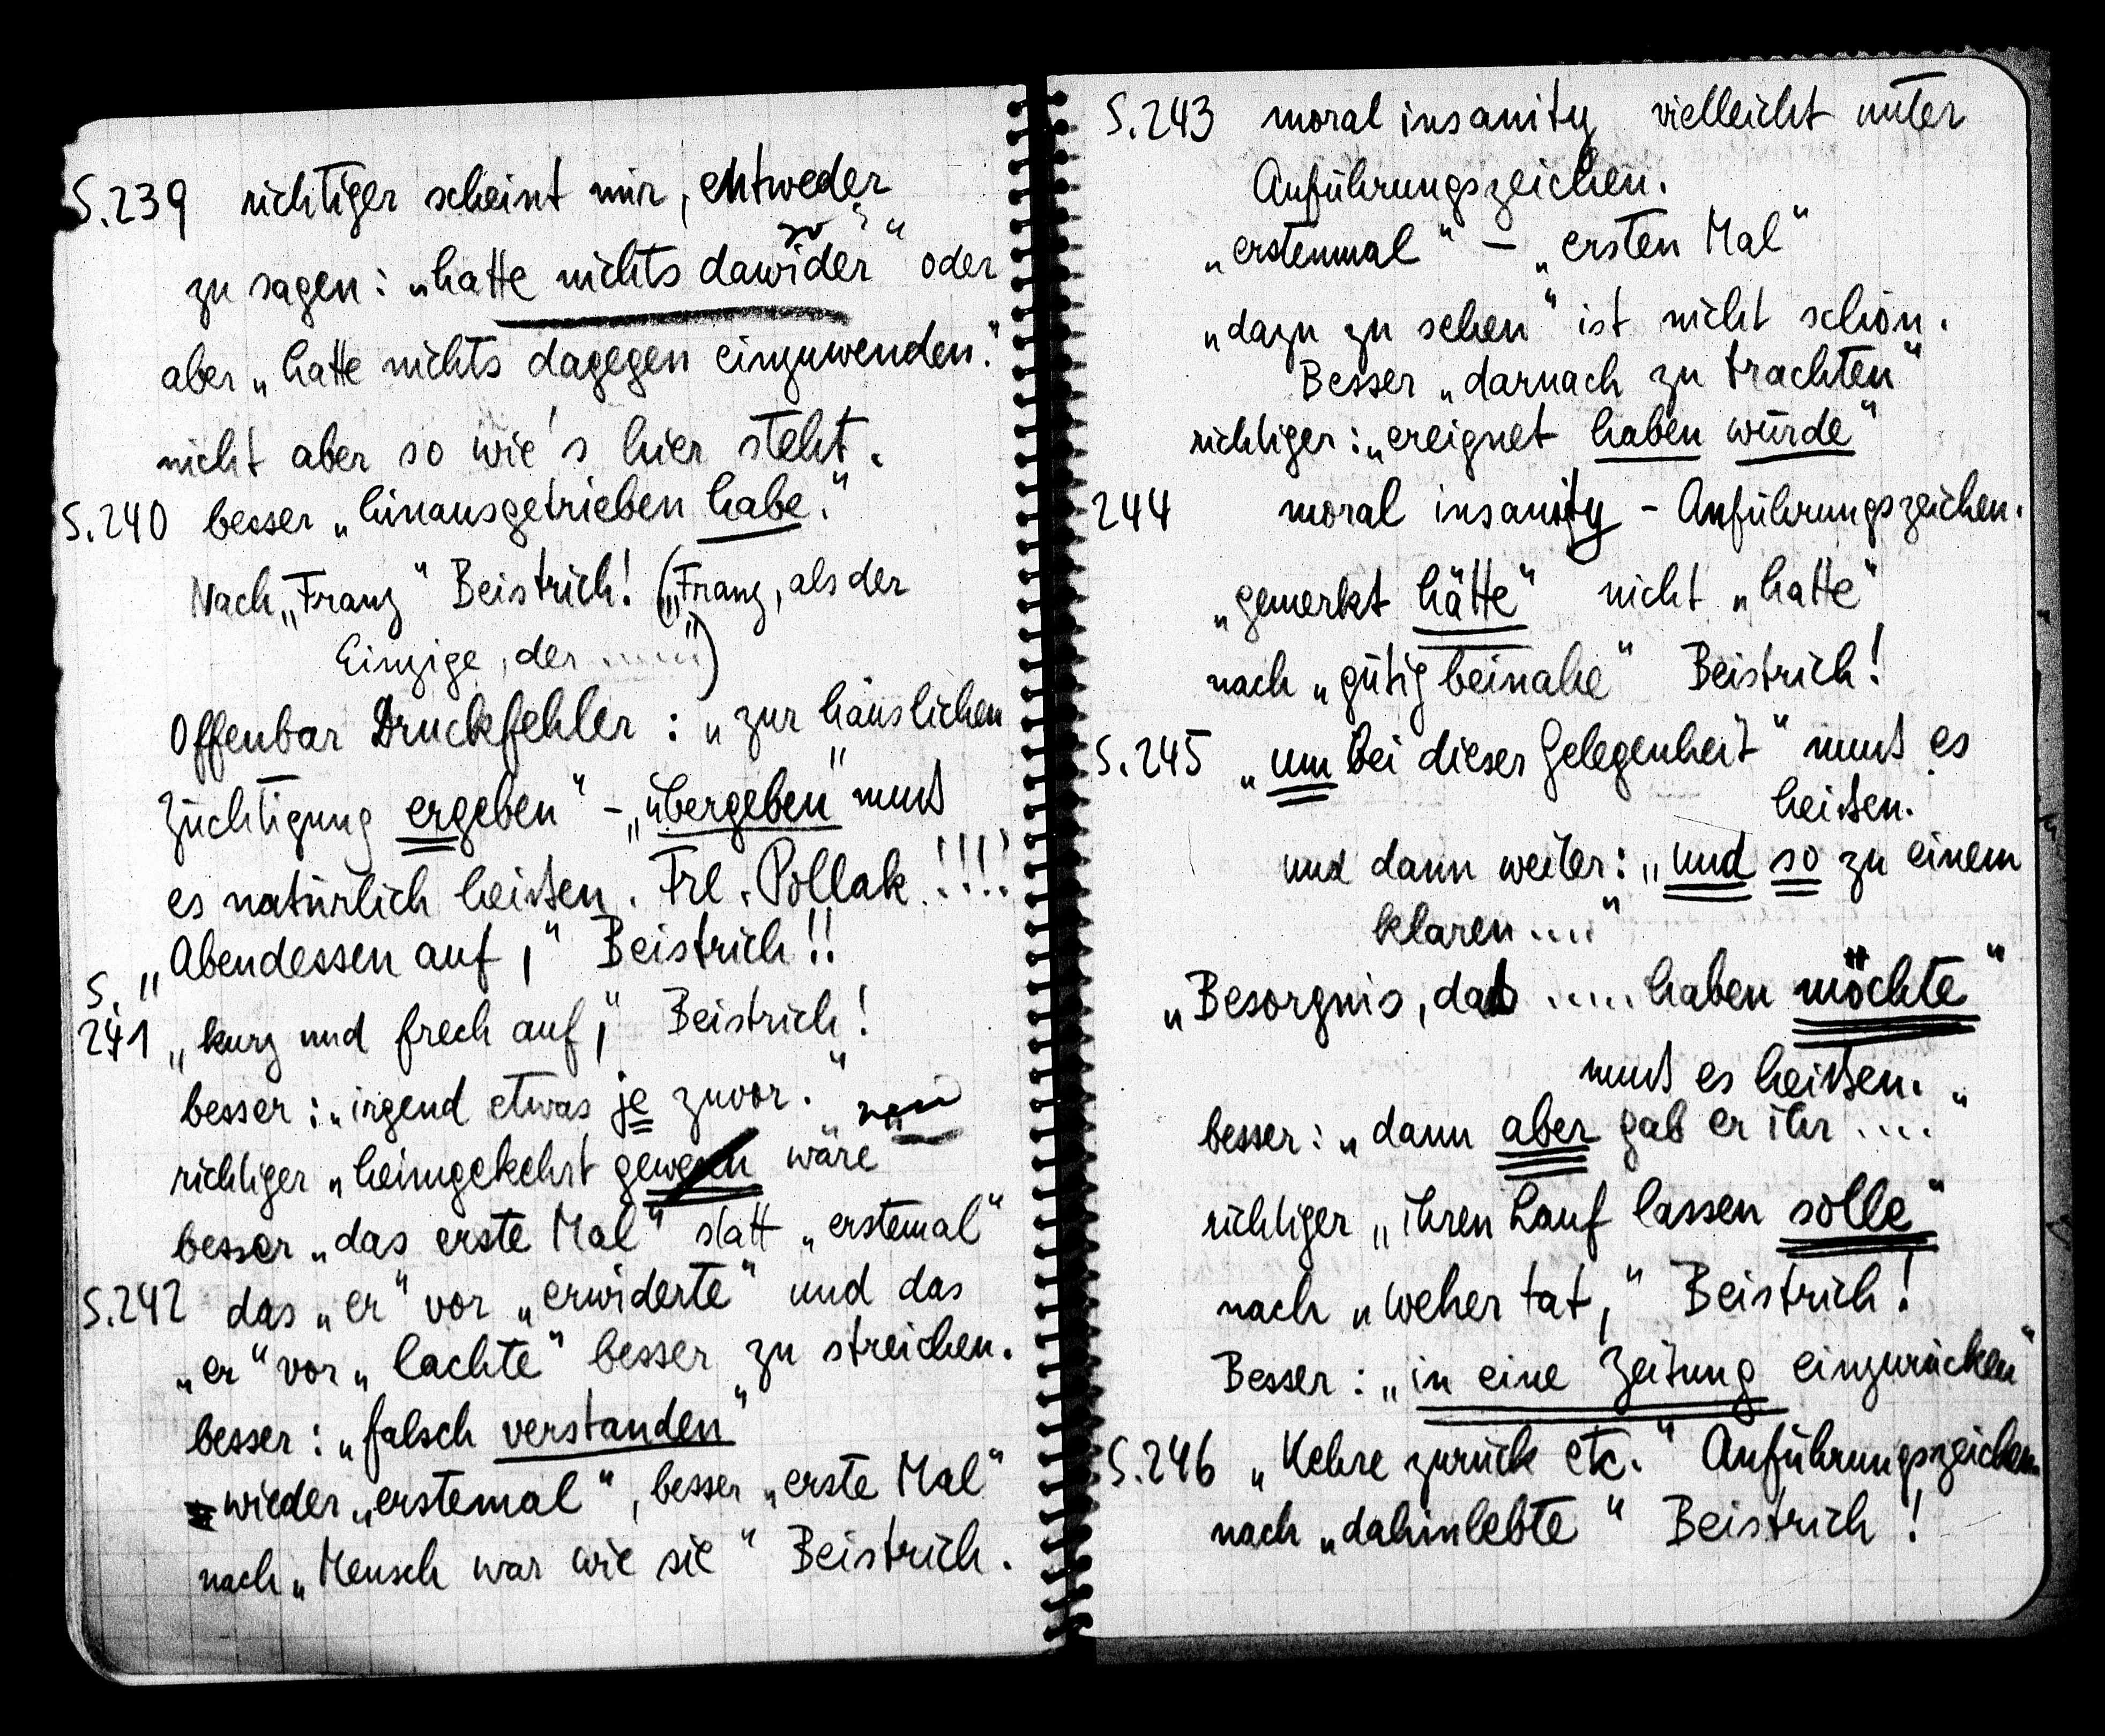 S.239 richtiger scheint mir, entweder
zu sagen: „hatte nichts dawider“ oder
aber „hatte nichts dagegen einzuwenden.“
nicht aber so wie's hier steht.
S.240 besser „hinausgetrieben habe.“
Nach „Franz“ Beistrich! („Franz, als der
Einzige, der ......“)
Offenbar Druckfehler: „zur häuslichen
Züchtigung ergeben“ – „übergeben“ muß
es natürlich heißen. Frl. Pollak!!!!
„Abendessen auf,“ Beistrich!!
S.
241 „kurz und frech auf,“ Beistrich!
besser: „irgend etwas je zuvor.“
richtiger „heimgekehrt gewesen wäre“ nein
besser „das erste Mal“ statt „erstemal“
S.242 das „er“ vor „erwiderte“ und das
„er“ vor „lachte“ besser zu streichen.
besser: „falsch verstanden“
wieder „erstemal“, besser „erste Mal“
nach „Mensch war wie sie“ Beistrich.
S.243 moral insanity vielleicht unter
Anführungszeichen.
„erstenmal“ – „ersten Mal“
„dazu zu sehen“ ist nicht schön.
Besser „darnach zu trachten“
richtiger: „ereignet haben würde“
244 moral insanity – Anführungszeichen.
„gemerkt hätte“ nicht „hatte“
nach „gütig beinahe“ Beistrich!
S.245 „um bei dieser Gelegenheit“ muß es
heißen.
und dann weiter: „und so zu einem
klaren....“
„Besorgnis, daß ..... haben möchte“
muß es heißen.
besser: „dann aber gab er ihr ....“
richtiger „ihren Lauf lassen solle“
nach „weher tat,“ Beistrich!
Besser: „in eine Zeitung einzurücken“
S.246 „Kehre zurück etc.“ Anführungszeichen
nach „dahinlebte“ Beistrich!